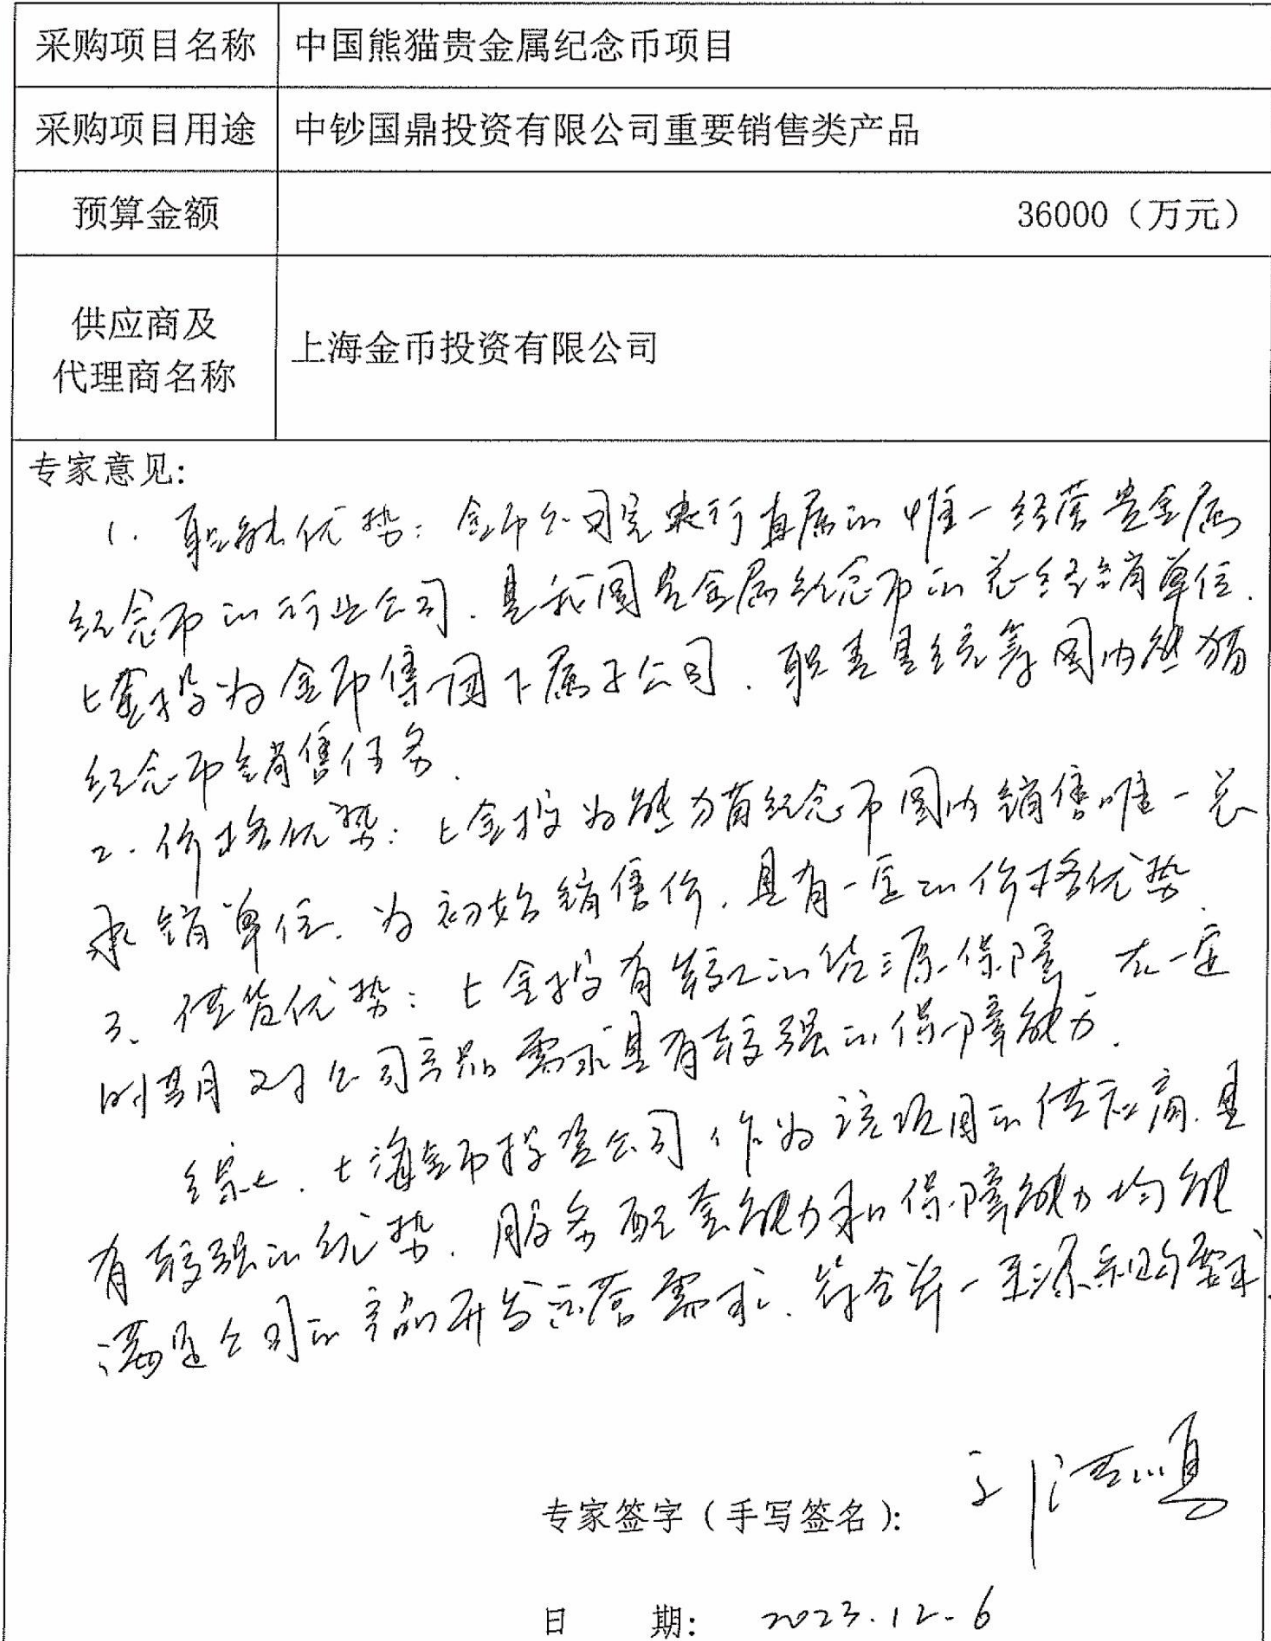 采购项目名称 中国熊猫贵金属纪念币项目
采购项目用途 中钞国鼎投资有限公司重要销售类产品
预算金额 36000（万元）
供应商及
代理商名称
上海金币投资有限公司
专家意见：
1. 职能优势：金币公司是央行直属的唯一经营贵金属
纪念币的行业公司，是我国贵金属纪念币的总经销单位.
上金投为金币集团下属子公司，职责是统筹国内熊猫
纪念币销售任务.
2. 价格优势：上金投为熊猫纪念币国内销售唯一总
承销单位，为初始销售价，具有一定的价格优势.
3、供货优势：上金投有较的货源保障 在一定
时期对公司产品需求具有较强的保障能力.
综上，上海金币投资公司作为该项目的供应商，具
有较强的优势，服务配套能力和保障能力均能
满足公司的产品开发运营需求，符合单一来源采购要求.
专家签字（手写签名）：
日 期： 2023.12.6